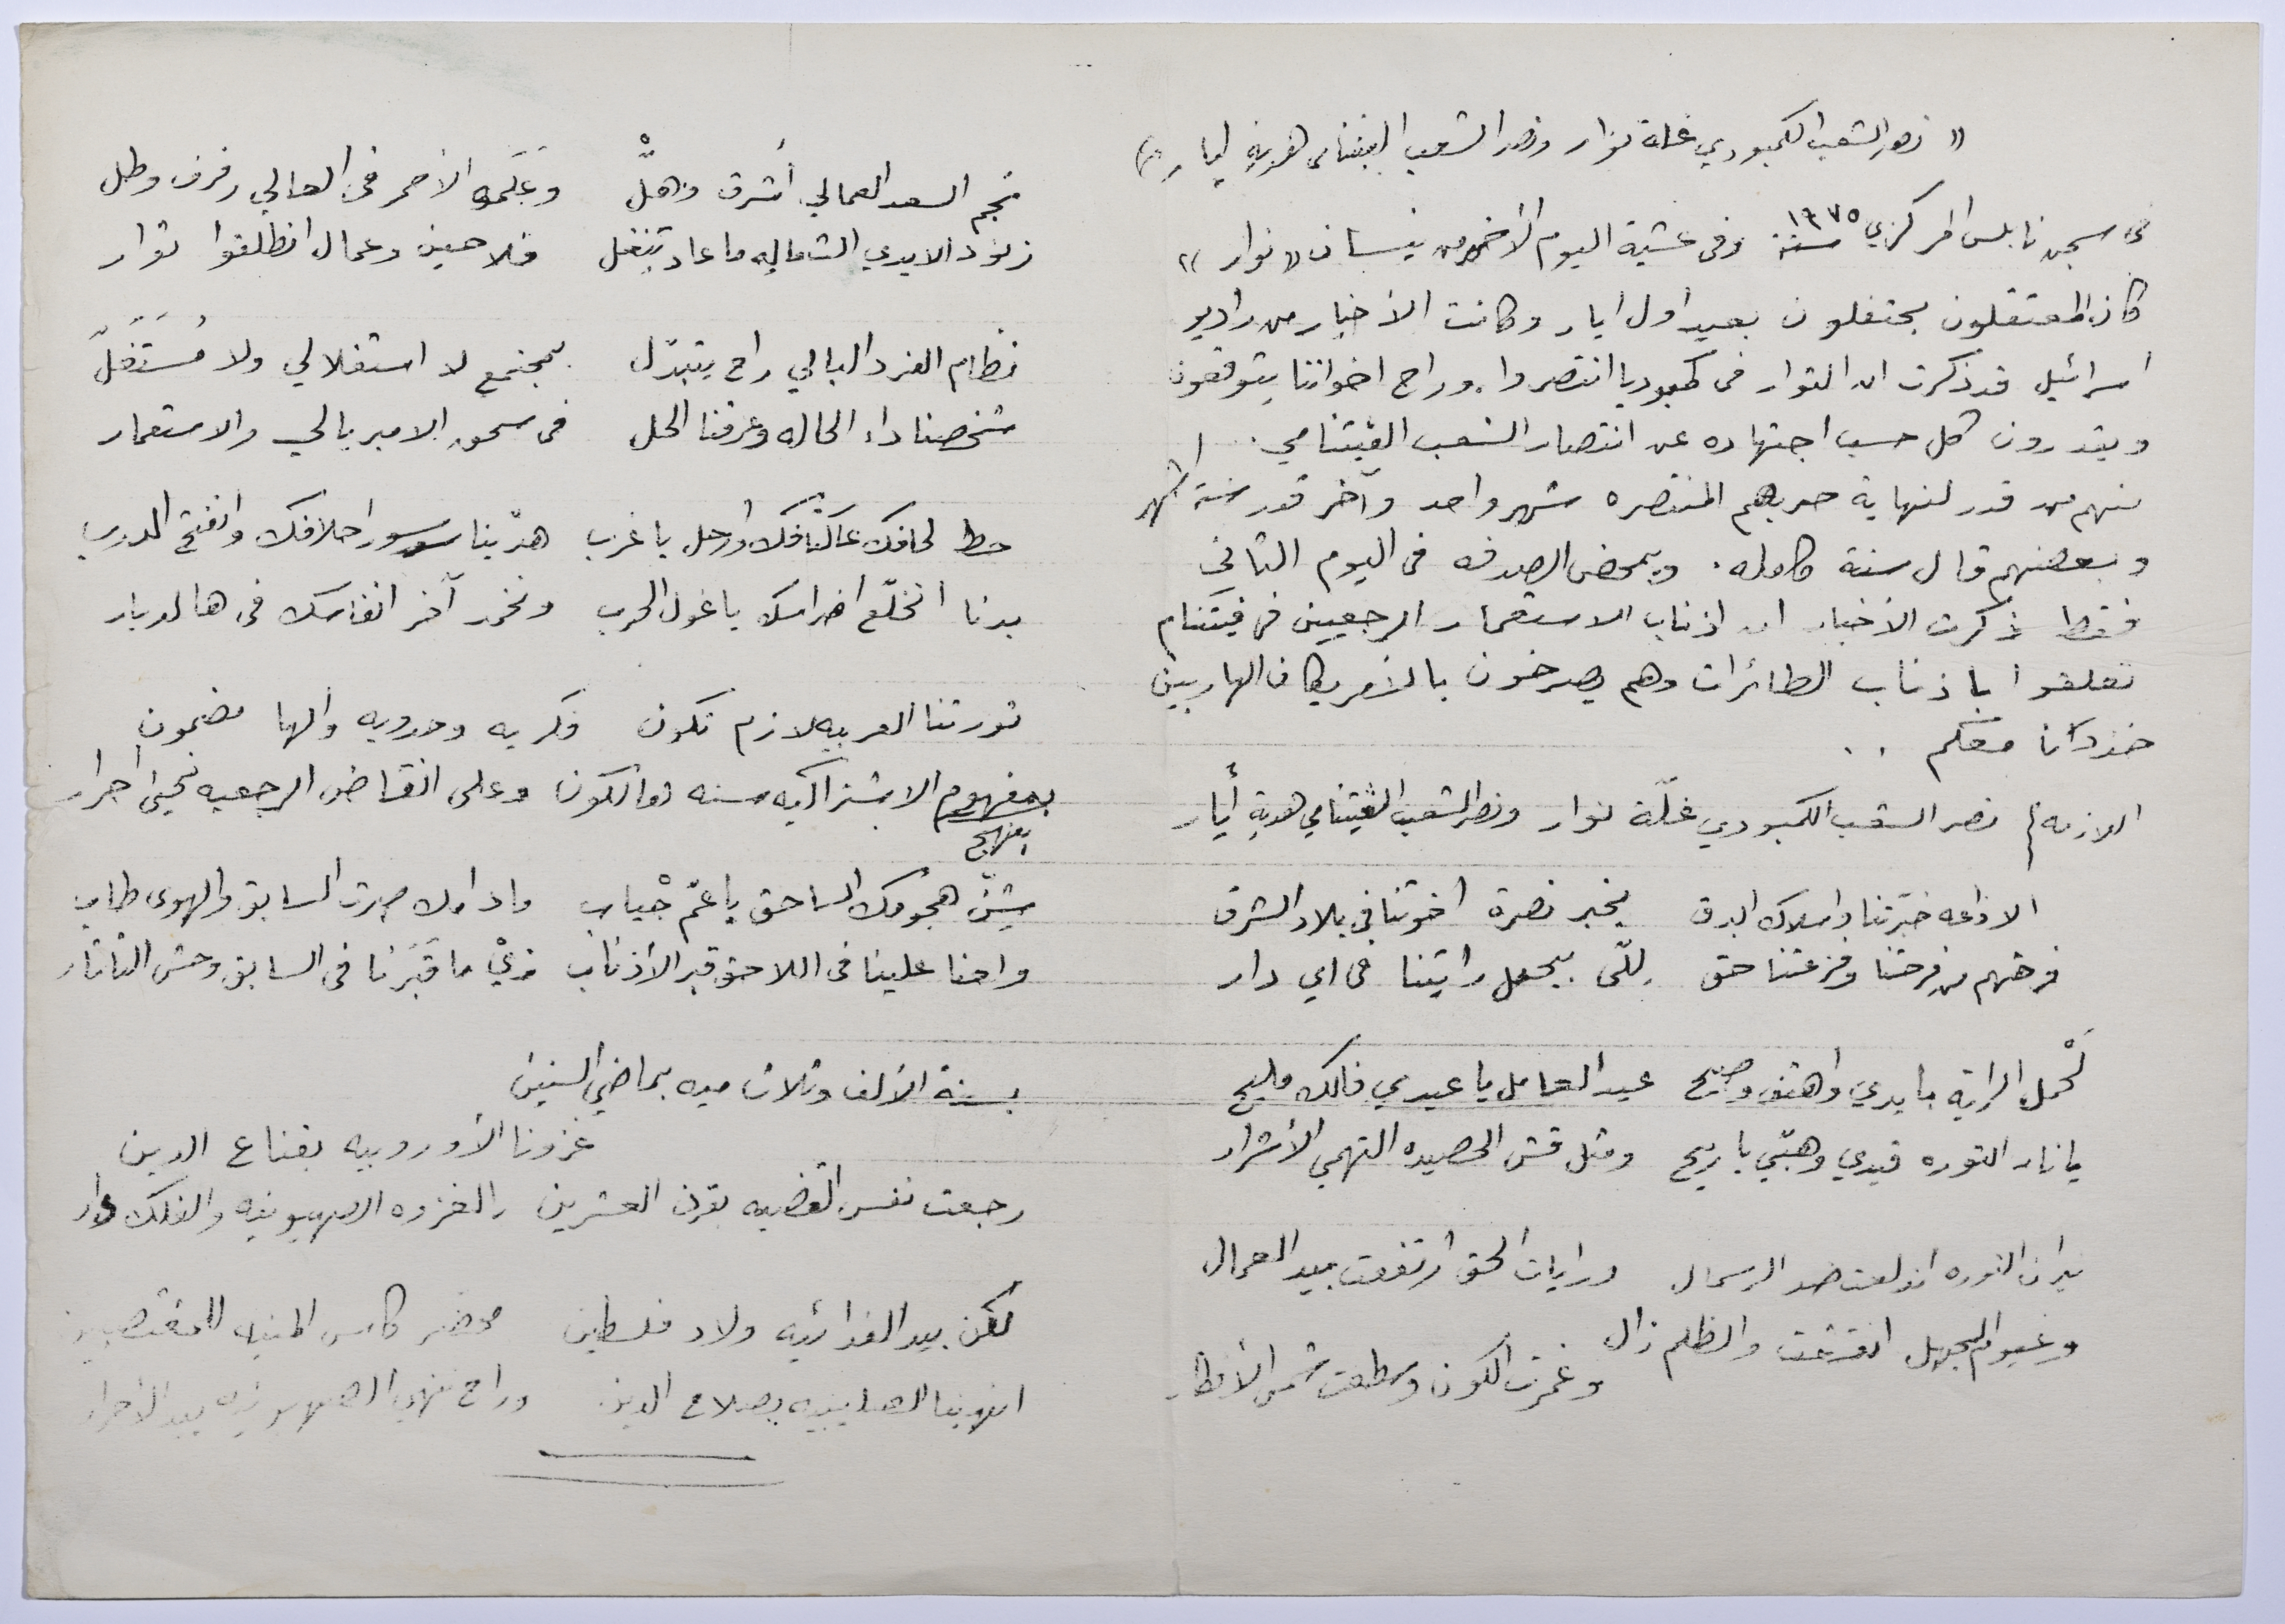 « نصر الشعب الكمبودي غلة نوار ونصر الشعب الفيتنامي هدية ايار »
في سجن نابلس المركزي سنة ١٩٧٥ وفي عشية اليوم الأخير من نيسان « نوار »
كان المعتقلون يحتفلون بعيد اول ايار وكانت الأخبار من راديو
اسرائيل قد ذكرت ان الثوار في كمبوديا انتصروا. وراح اخواننا يتوقعون
ويقدرون كل حسب اجتهاده عن انتصار الشعب الفيتنامي ..
منهم من قدر لنهاية حربهم المنتصره شهر واحد وآخر قدر ستة اشهر
وبعضهم قال سنة كامله . وبمحض الصدفه في اليوم الثاني
فقط ذكرت الأخبار ان اذناب الاستعمار الرجعيين في فيتنام
تعلقوا باذناب الطائرات وهم يصرخون بالأمريكان الهاربين
خذوانا معكم ..
اللازمه } نصر الشعب الكمبودي غلّة نوار ونصر الشعب الفيتنامي هدية أيار
الاذاعه خبّرتنا واسلاك البرق بخبر نصرة اخوتنا في بلاد الشرق
فرحتهم من فرحتنا وفزعتنا حق للّي بيحمل رايتنا في اي دار
لَحْمل الراية بايدي واهتف وصيح عيد العامل يا عيدي فالك مليح
يا نار الثوره قيدي وهبّي يا ريح ومثل قش الحصيده التهمي الأشرار
نيران الثوره اندلعت ضد الرسمال ورايات الحق ارتفعت بيد العمال
وغيوم الجهل انقشعت والظلم زال وغمرت الكون وسطعت شمس الأنظار
نجم السعد العمالي أشرق وهلّ وعَلَمه الأحمر في العالي رفرف وطل
زنود الايدي الشغاليه ما عاد تنغل فلاحين وعمال انطلقوا ثوار
نظام الفرد البالي راح يتبدّل بمجتمع لا استغلالي ولا مُستَغَلّ
شخصنا داء الحاله وعرفنا الحل في سحق الامبريالي والاستعمار
حط لحافك عَ اكتافك وارحل يا غرب هدّينا سور احلافك وانفتح الدرب
بدنا انخلّع اضراسك يا غول الحرب ونخمد آخر انفاسك في هالديار
ثورتنا العربيه لازم تكون فكريه وحدويه والها مضمون
بمفهوم الاشتراكيه سنه الكون وعلى انقاض الرجعيه نحيى احرار
بمنهج
شِنّ هجومك الساحق يا عمّ جْياب ما دامك صرت السابق والهوى طاب
واحنا علينا في اللاحق قبر الأذناب زيّ ما قَبَرنا في السابق وحش التاتار
بسنة الألف وثلاث ميه بماضي السنين
غزونا الأوروبيه بقناع الدين
رجعت نفس القضيه بقرن العشرين بالغزوه الصهيونيه والفلك دار
لكن بيد الفدائيه ولاد فلسطين محضر كاس المنيه للمغتصبين
انهينا الصليبيه بصلاح الدين وراح ننهي الصهيونيه بيد الأحرار